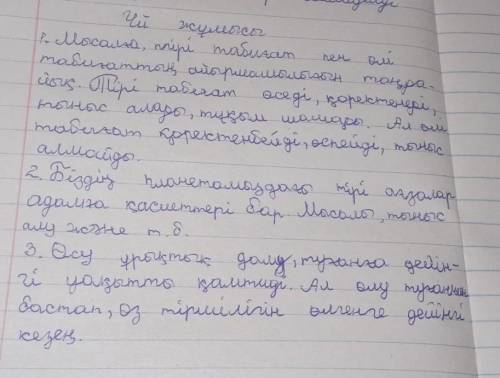 Үй жұмысы
1. Мысалға, тірі табиғат пен өлі
табиғаттың айырмашылығын таңда-
йық. Тірі табиғат өседі, қоректенеді,
тыныс алады, тұқым шашады. Ал өлі
табиғат қоректенбейді, өспейді, тыныс
алмайды.
2. Біздің планетамыздағы тірі ағзалар
адамға қасиеттері бар Мысалы, тыныс
алу және т. б.
3. Өсу ұрықтық даму, туғанға дейін-
гі уақытты қамтиді. Ал өлу туғаннан
бастап, өз тірмілігін өлгенге дейінгі
кезең.